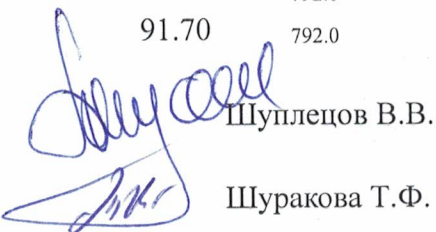 91.70 792.0
Шуплецов В.В.
Шуракова Т.Ф.